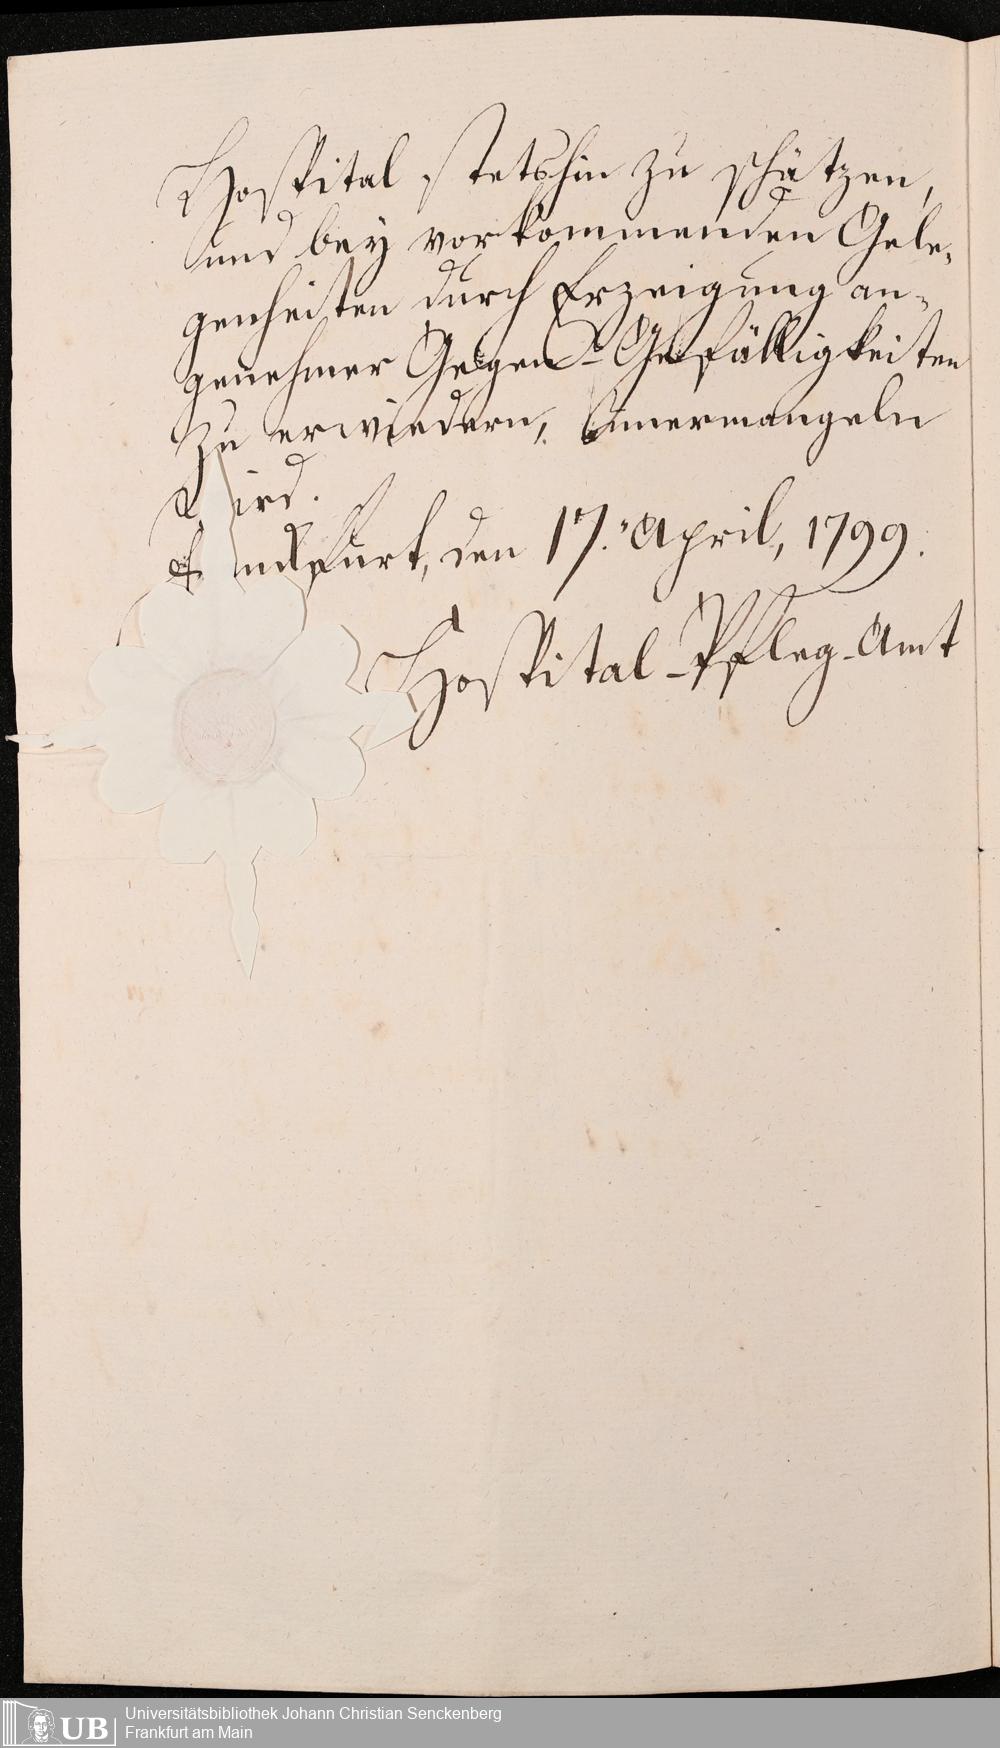 Hospital stetshin zu schätzen,
und bey vorkommenden Gele-
genheiten durch Erzeigung an-
genehmer Gegen-Gefälligkeiten
zu erwiedern, ohnermangeln
wird.
Frankfurt, den 17. April, 1799.
Hospital-Pfleg-Amt
UB
Universitätsbibliothek Johann Christian Senckenberg
Frankfurt am Main